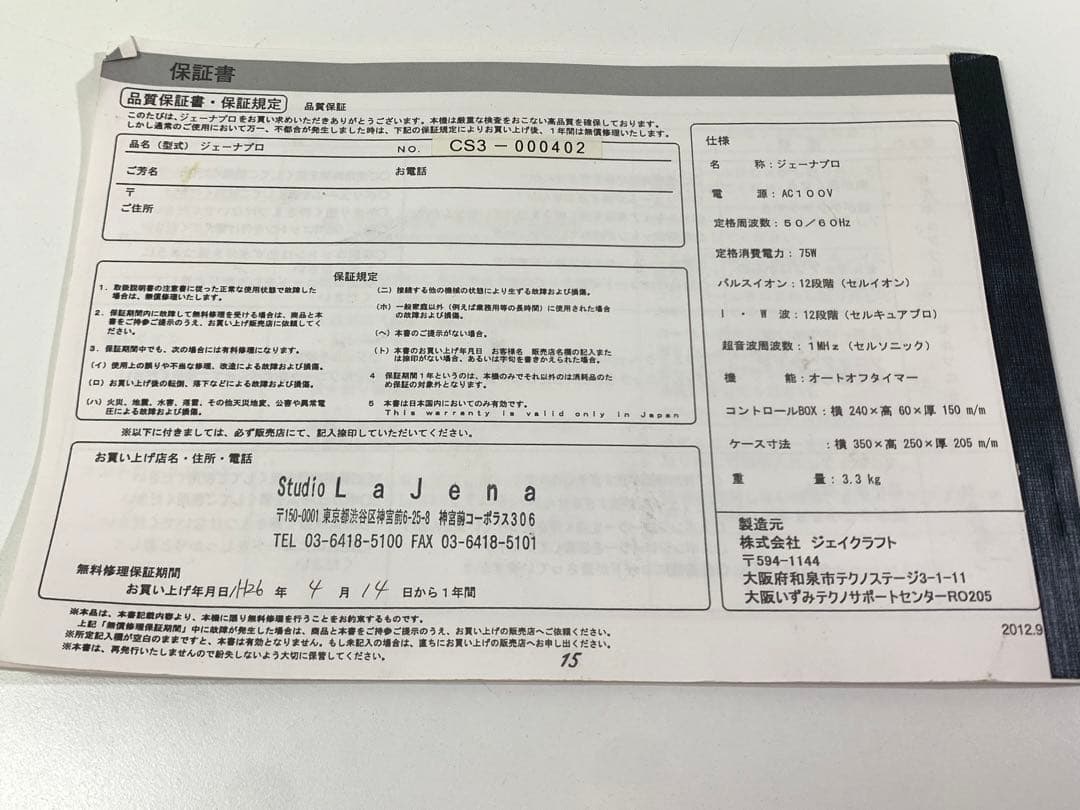 保証書
品質保証書・保証規定 品質保証
このたびは、ジェーナプロをお買い求めいただきありがとうございます。本機は厳重な検査をおこない高品質を確保しております。
しかし通常のご使用において万一、不都合が発生しました時は、下記の保証規定によりお買い上げ後、1年間は無償修理いたします。
品名（型式） ジェーナプロ NO. CS3-000402
ご芳名 お電話
〒
ご住所
保証規定
1．取扱説明書の注意書に従った正常な使用状態で故障した
場合は、無償修理いたします。
2．保証期間内に故障して無料修理を受ける場合は、商品と本
書をご持参ご提示のうえ、お買い上げ販売店に依頼してく
ださい。
3．保証期間中でも、次の場合には有料修理になります。
（イ）使用上の誤りや不当な修理、改造による故障および損傷。
（ロ）お買い上げ後の転倒、落下などによる故障および損傷。
（ハ）火災、地震、水害、落雷、その他天災地変、公害や異常電
圧による故障および損傷。
（ニ）接続する他の機械の状態により生ずる故障および損傷。
（ホ）一般家庭以外（例えば業務用等の長時間）に使用された場合
の故障および損傷。
（ヘ）本書のご提示がない場合。
（ト）本書のお買い上げ年月日 お客様名 販売店名欄の記入また
は捺印がない場合、あるいは字句を書きかえられた場合。
4 保証期間1年というのは、本機のみでそれ以外のは消耗品のた
め保証の対象外となります。
5 本書は日本国内においてのみ有効です。
This warranty is valid only in Japan
※以下に付きましては、必ず販売店にて、記入捺印していただいてください。
お買い上げ店名・住所・電話
Studio La Jena
〒150-0001 東京都渋谷区神宮前6-25-8 神宮前コーポラス306
TEL 03-6418-5100 FAX 03-6418-5101
無料修理保証期間
お買い上げ年月日 H26 年 4 月 14 日から1年間
※本品は、本書記載内容より、本機に限り無料修理を行うことをお約束するものです。
上記「無償修理保証期間」中に故障が発生した場合は、商品と本書をご持参ご提示のうえ、お買い上げの販売店へご依頼ください。
※所定記入欄が空白のままですと、本書は有効となりません。もし未記入の場合は、直ちにお買い上げの販売店へお申し出ください。
※本書は、再発行いたしませんので紛失しないよう大切に保管してください。
15
仕様
名 称：ジェーナプロ
電 源：AC100V
定格周波数：50／60Hz
定格消費電力：75W
パルスイオン：12段階（セルイオン）
I・W波：12段階（セルキュアプロ）
超音波周波数：1MHz（セルソニック）
機 能：オートオフタイマー
コントロールBOX：横 240×高 60×厚 150 m/m
ケース寸法 ：横 350×高 250×厚 205 m/m
重 量：3.3 kg
製造元
株式会社 ジェイクラフト
〒594-1144
大阪府和泉市テクノステージ3-1-11
大阪いずみテクノサポートセンターRO205
2012.9